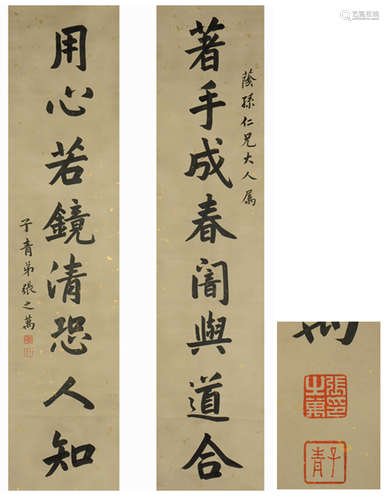 著手成春闇與道合
蔭孫仁兄大人屬
用心若鏡清恐人知
子青弟張之萬
張之萬印
子青